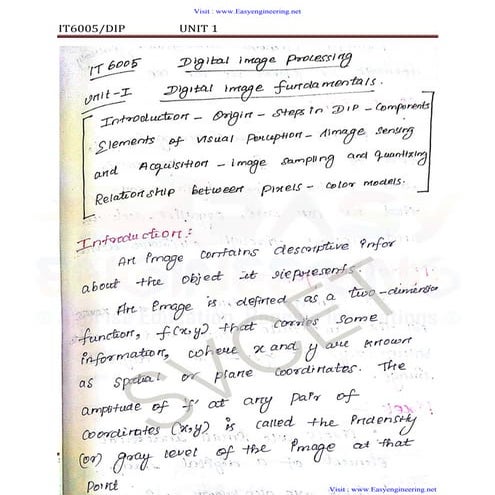 Visit : www.Easyengineering.net
IT6005/DIP UNIT 1
IT 6005 Digital image processing
unit-I Digital image fundamentals.
Introduction - Origin - steps in DIP - components
Elements of visual perception - image sensing
and Acquisition - image sampling and quantizing
Relationship between pixels - color models.
Introduction:
An image contains descriptive infor
about the object it represents.
An image is defined as a two-dimension
function, f(x,y) that carries some
information, where x and y are known
as spatial or plane coordinates. The
amplitude of 'f' at any pair of
coordinates (x,y) is called the intensity
(or) gray level of the image at that
point
SVCET
Visit : www.Easyengineering.net